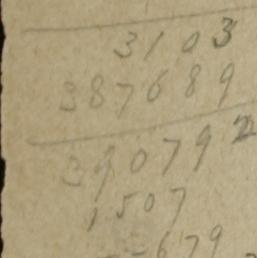 3103
387689
390792
1507
679